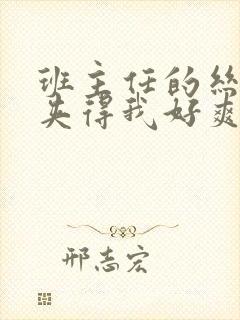 班主任的丝
夹得我好爽
邢志宏